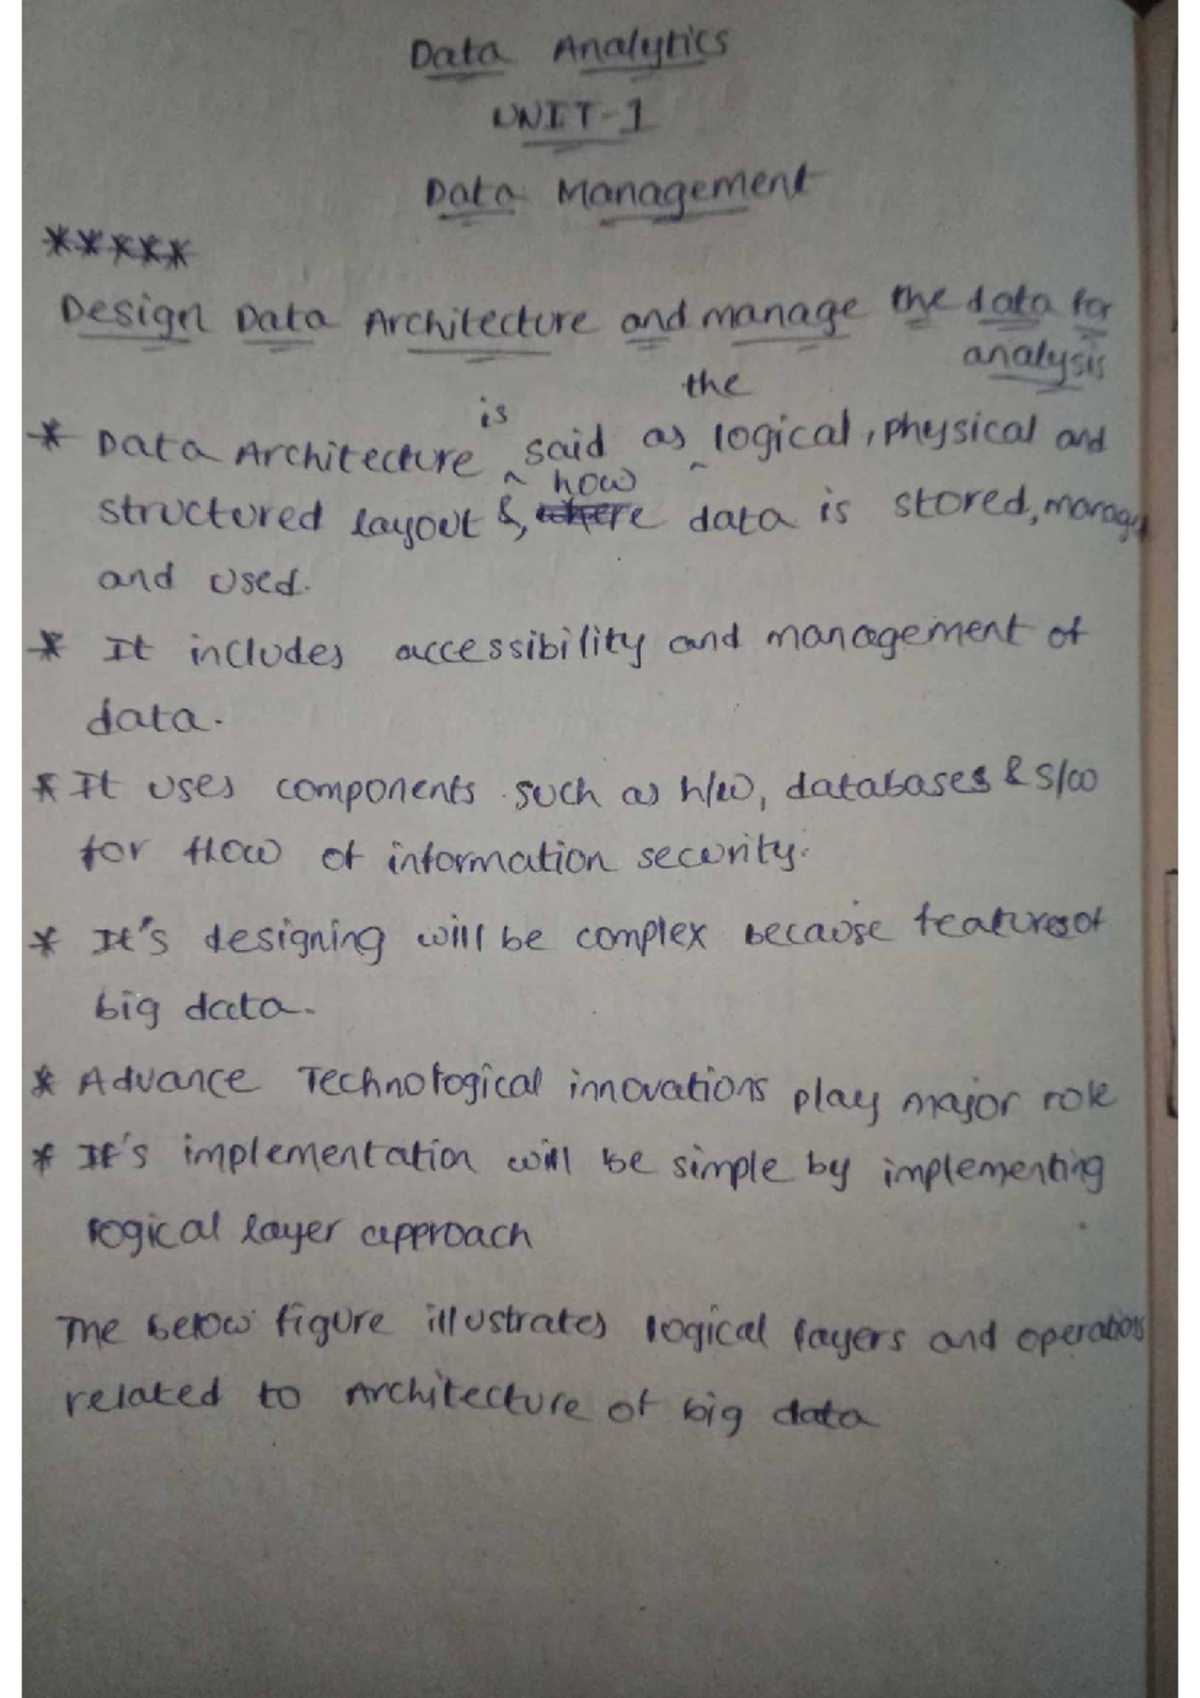 Data Analytics
UNIT-1
Data Management
*****
Design Data Architecture and manage the data for
analysis
* Data Architecture is said as the logical, physical and
structured layout & how data is stored,
and used.
* It includes accessibility and management of
data.
* It uses components such as h/w, databases & s/w
for flow of information security.
* It's designing will be complex because features of
big data.
* Advance Technological innovations play major role
* It's implementation will be simple by implementing
logical layer approach
The below figure illustrates logical layers and operations
related to Architecture of big data